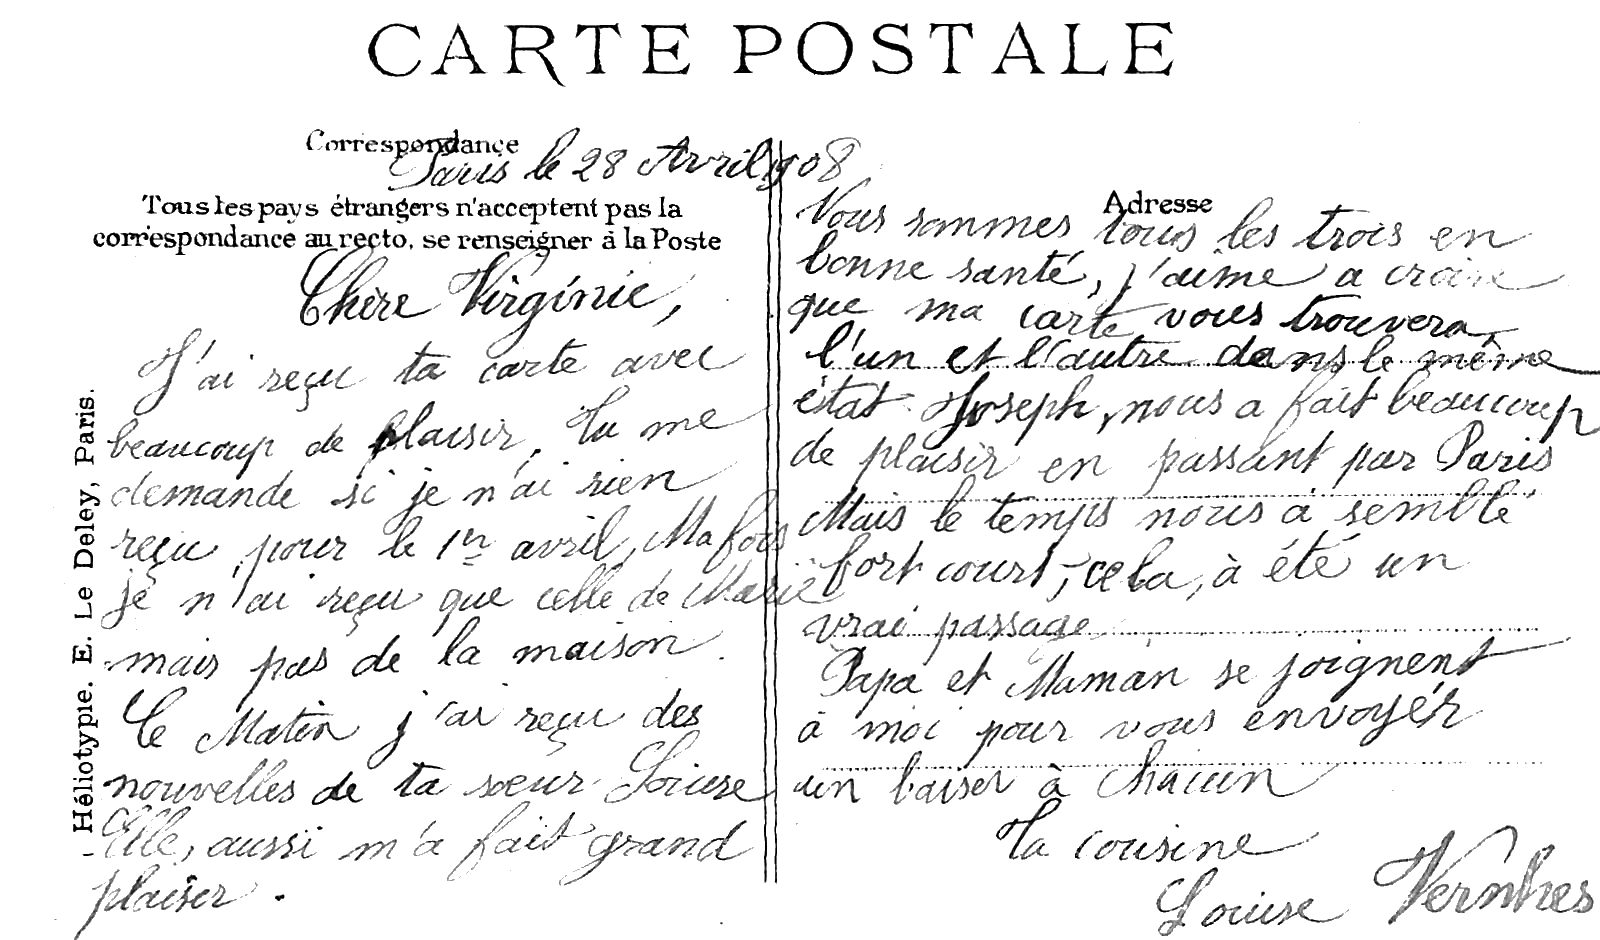 CARTE POSTALE
Correspondance
Paris le 28 Avril 1908
Tous les pays étrangers n'acceptent pas la
correspondance au recto, se renseigner à la Poste
Chère Virginie,
J'ai reçu ta carte avec
beaucoup de plaisir, Tu me
demande si je n'ai rien
reçu, pour le 1er avril, Ma fois
je n'ai reçu que celle de Marie
mais pas de la maison.
Ce Matin j'ai reçu des
nouvelles de ta sœur Louise
Elle, aussi m'a fait grand
plaisir.
Adresse
Vous sommes tous les trois en
bonne santé, j'aime a croire
que ma carte vous trouvera
l'un et l'autre dans le même
état. Joseph, nous a fait beaucoup
de plaisir en passant par Paris
Mais le temps nous a semblé
fort court, cela, à été un
vrai passage
Papa et Maman se joignent
à moi pour vous envoyér
un baiser à chacun
Ta cousine
Louise Vernhes
Héliotypie. E. Le Deley, Paris.